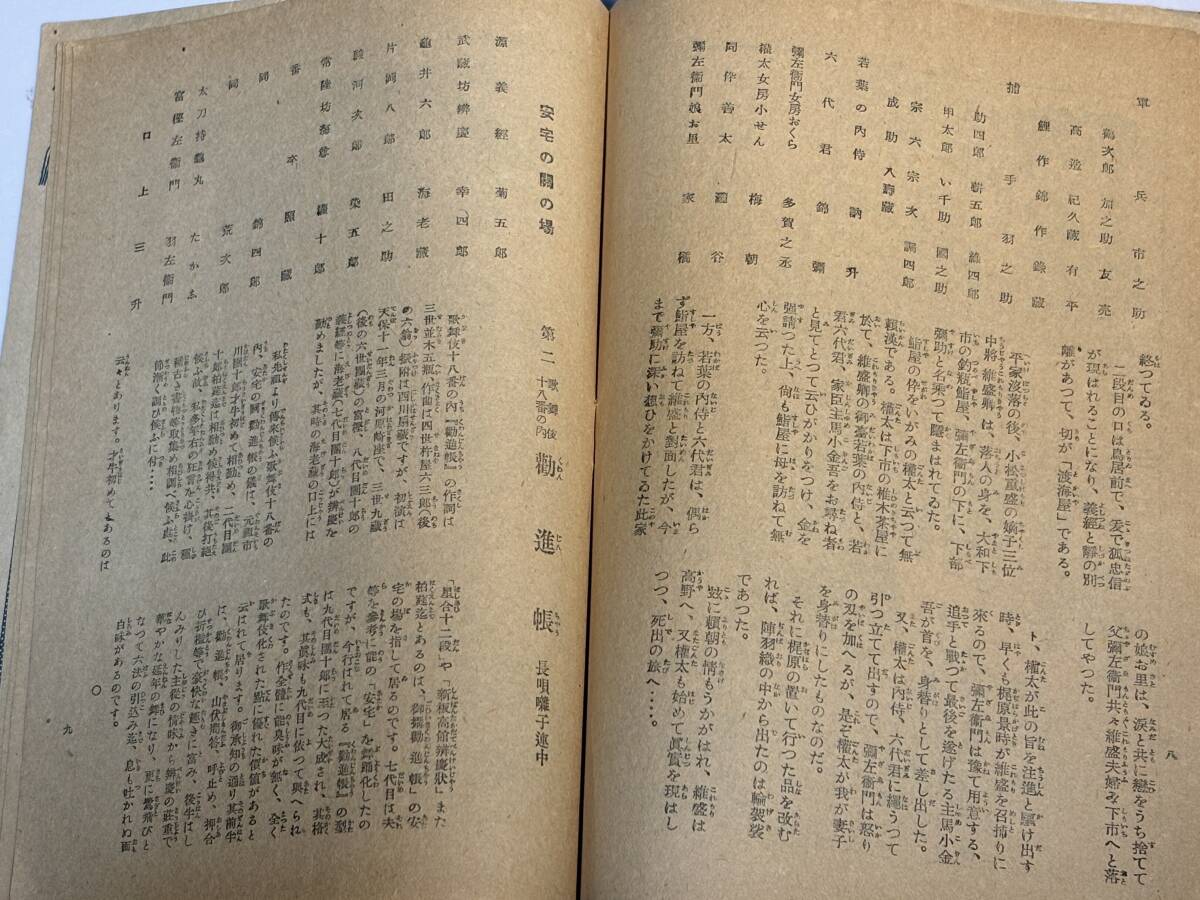 軍兵 市之助
鶴次郎 加之助 友亮
高造 紀久蔵 有平
鯉作 錦作 錄蔵
捕手 羽之助
助四郎 新五郎 維四郎
甲太郎 い千助 國之助
宗六 宗次 調四郎
成助 八壽蔵
若葉の內侍 訥升
六代君 錦彌
彌左衞門女房おくら 多賀之丞
權太女房小せん 梅朝
同伜善太
彌左衞門娘お里 家橘
終つてゐる。
二段目の口は鳥居前で、爰で狐忠信
が現はれることになり、義經と靜の別
離があつて、切が「渡海屋」である。
平家沒落の後、小松重盛の嫡子三位
中將維盛卿は、落人の身を、大和下
市の釣瓶鮨屋、彌左衞門の下に、下部
彌助と名乗つて隱まはれてゐた。
鮨屋の伜をいがみの權太と云つて無
賴漢である。權太は下市の椎木茶屋に
於て、維盛卿の御臺若葉の內侍と、若
君六代君、家臣主馬小金吾をお尋ね者
と見てとつて云ひがかりをつけ、金を
强請つた上、尙も鮨屋に母を訪ねて無
心を云つた。
一方、若葉の內侍と六代君は、偶ら
ず鮨屋を訪ねて維盛と對面したが、今
まで彌助に深い想ひをかけてゐた此家
の娘お里は、淚と共に戀をうち捨てて
父彌左衞門共々維盛夫婦み下市へと落
してやつた。
ト、權太が此の旨を注進と駆け出す
時、早くも梶原景時が維盛を召捕りに
來るので、彌左衞門は豫て用意する、
追手と戰つて最後を遂げたる主馬小金
吾が首を、身替りとして差し出した。
又、權太は內侍、六代君に繩うつて
引つ立てて出すので、彌左衞門は怒り
の刃を加へるが、是ぞ權太が我が妻子
を身替りにしたものなのだ。
それに梶原の置いて行つた品を改む
れば、陣羽織の中から出たのは輪袈裟
であつた。
玆に賴朝の情もうかがはれ、維盛は
高野へ、又權太も始めて眞實を現はし
つつ、死出の旅へ‥‥。
八
第二 歌舞伎十八番の內 勸進帳 長唄囃子連中
安宅の關の場
源義經 菊五郎
武蔵坊辨慶 幸四郎
龜井六郎 海老蔵
片岡八郎 田之助
駿河次郎 染五郎
常陸坊海尊 團十郎
番卒 原蔵
同 錦四郎
同 荒次郎
太刀持鶴丸 たかゑ
富樫左衞門 羽左衞門
口上 三升
歌舞伎十八番の內『勸進帳』の作詞は
三世並木五瓶、作曲は四世杵屋六三郎(後
の六翁)振附は西川扇蔵ですが、初演は
天保十一年三月の河原崎座で、三世九蔵
(後の六世團蔵)の富樫、八代目團十郎の
義經等に海老蔵(七代目團十郎)が辨慶を
勤めましたが、其時の海老蔵の口上には
私先祖より傳來候ふ歌舞伎十八番の
內、安宅の關、勸進帳の儀は、元祖市
川團十郎才牛初めて相勤め、二代目團
十郎柏莚迄は相勤め候得共、其後打絶
候ふ故、私多年右の狂言を心掛け、種
種古き書物等取集め相調べ候ふ處、此
節漸く調び候ふに付‥‥
云々とあります。才牛初めてとあるのは
「星合十二段」や「新板高館辨慶狀」また
柏莚迄とあるのは、「御攝勸進帳」の安
宅の場を指して居るのです。七代目は夫
等を參考に能の「安宅」を舞踊化したの
ですが、今行はれて居る『勸進帳』の型
は九代目團十郎に至つた大成され、其格
式も、其眞味も九代目に依つて與へられ
たのです。作全體に能臭味が無く、全く
歌舞伎化された點に優れた價値があると
云はれて居ります。御承知の通り其前半
は、勸進帳、山伏問答、呼止め、押合
ひ折檻等で豪快な趣きに富み、後半はし
んみりした主從の情味から辨慶の莊重で
華やかな延年の舞になり、更に飛び
なつて六法の引込み迄、息も吐かれぬ面
白味があるのです。
〇
九